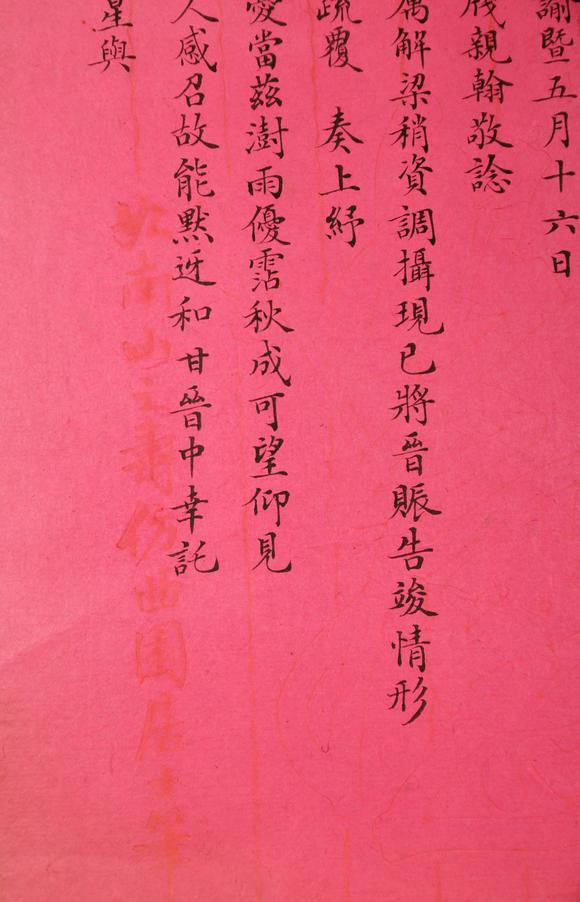 諭暨五月十六日
親翰敬諗
解梁稍資調攝現已將晉賑告竣情形
疏覆 奏上紓
愛當茲澍雨優霑秋成可望仰見
人感召故能默迓和甘晉中幸託
星與
如南山之壽仿曲園居士筆